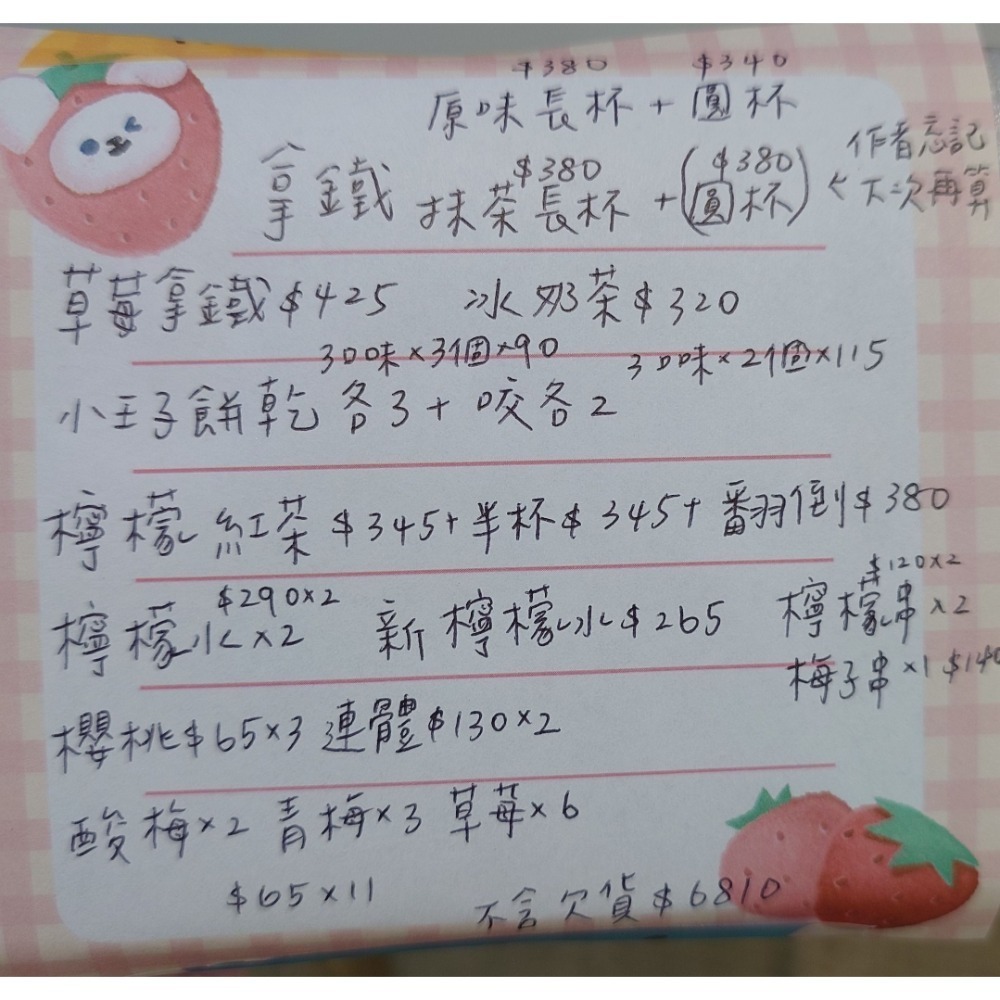 $380 $340
原味長杯+圓杯
拿鐵 $380 ($380)
抹茶長杯+(圓杯)
<作者忘記
下次再算
草莓拿鐵$425 冰奶茶$320
3口味×3個×90 3口味×2個×115
小王子餅乾各3+咬各2
檸檬紅茶$345+半杯$345+翻倒$380
$290×2 $120×2
檸檬水×2 新檸檬水$265 檸檬串×2
梅子串×1 $140
櫻桃$65×3 連體$130×2
酸梅×2 青梅×3 草莓×6
$65×11 不含欠貨$6810